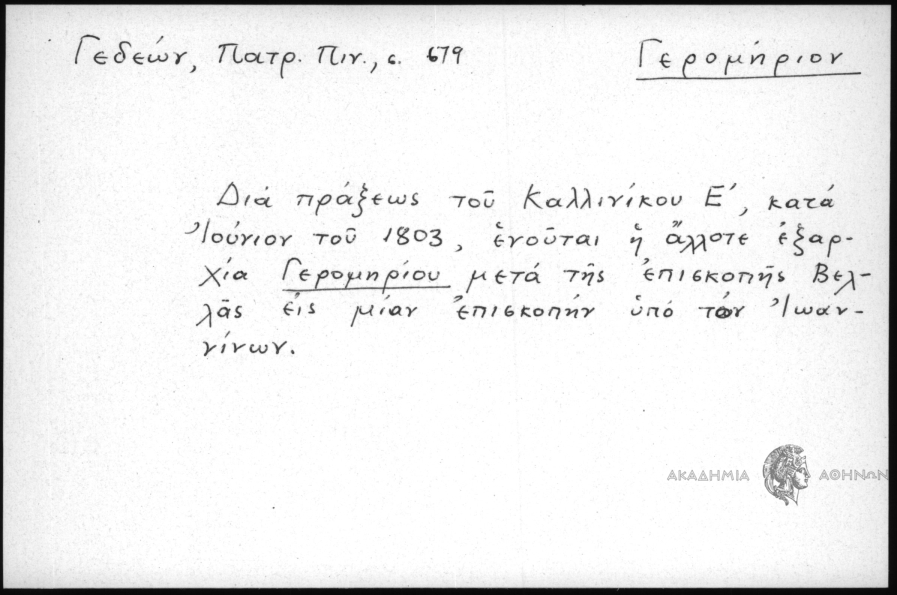 Γεδεών, Πατρ. Πιν., σ. 679 Γερομήριον
Διά πράξεως τοῦ Καλλινίκου Ε΄, κατά
Ἰούνιον τοῦ 1803, ἑνοῦται ἡ ἄλλοτε ἐξαρ-
χία Γερομηρίου μετά τῆς ἐπισκοπῆς Βελ-
λᾶς εἰς μίαν ἐπισκοπήν ὑπό τόν Ἰωαν-
νίνων.
ΑΚΑΔΗΜΙΑ ΑΘΗΝΩΝ